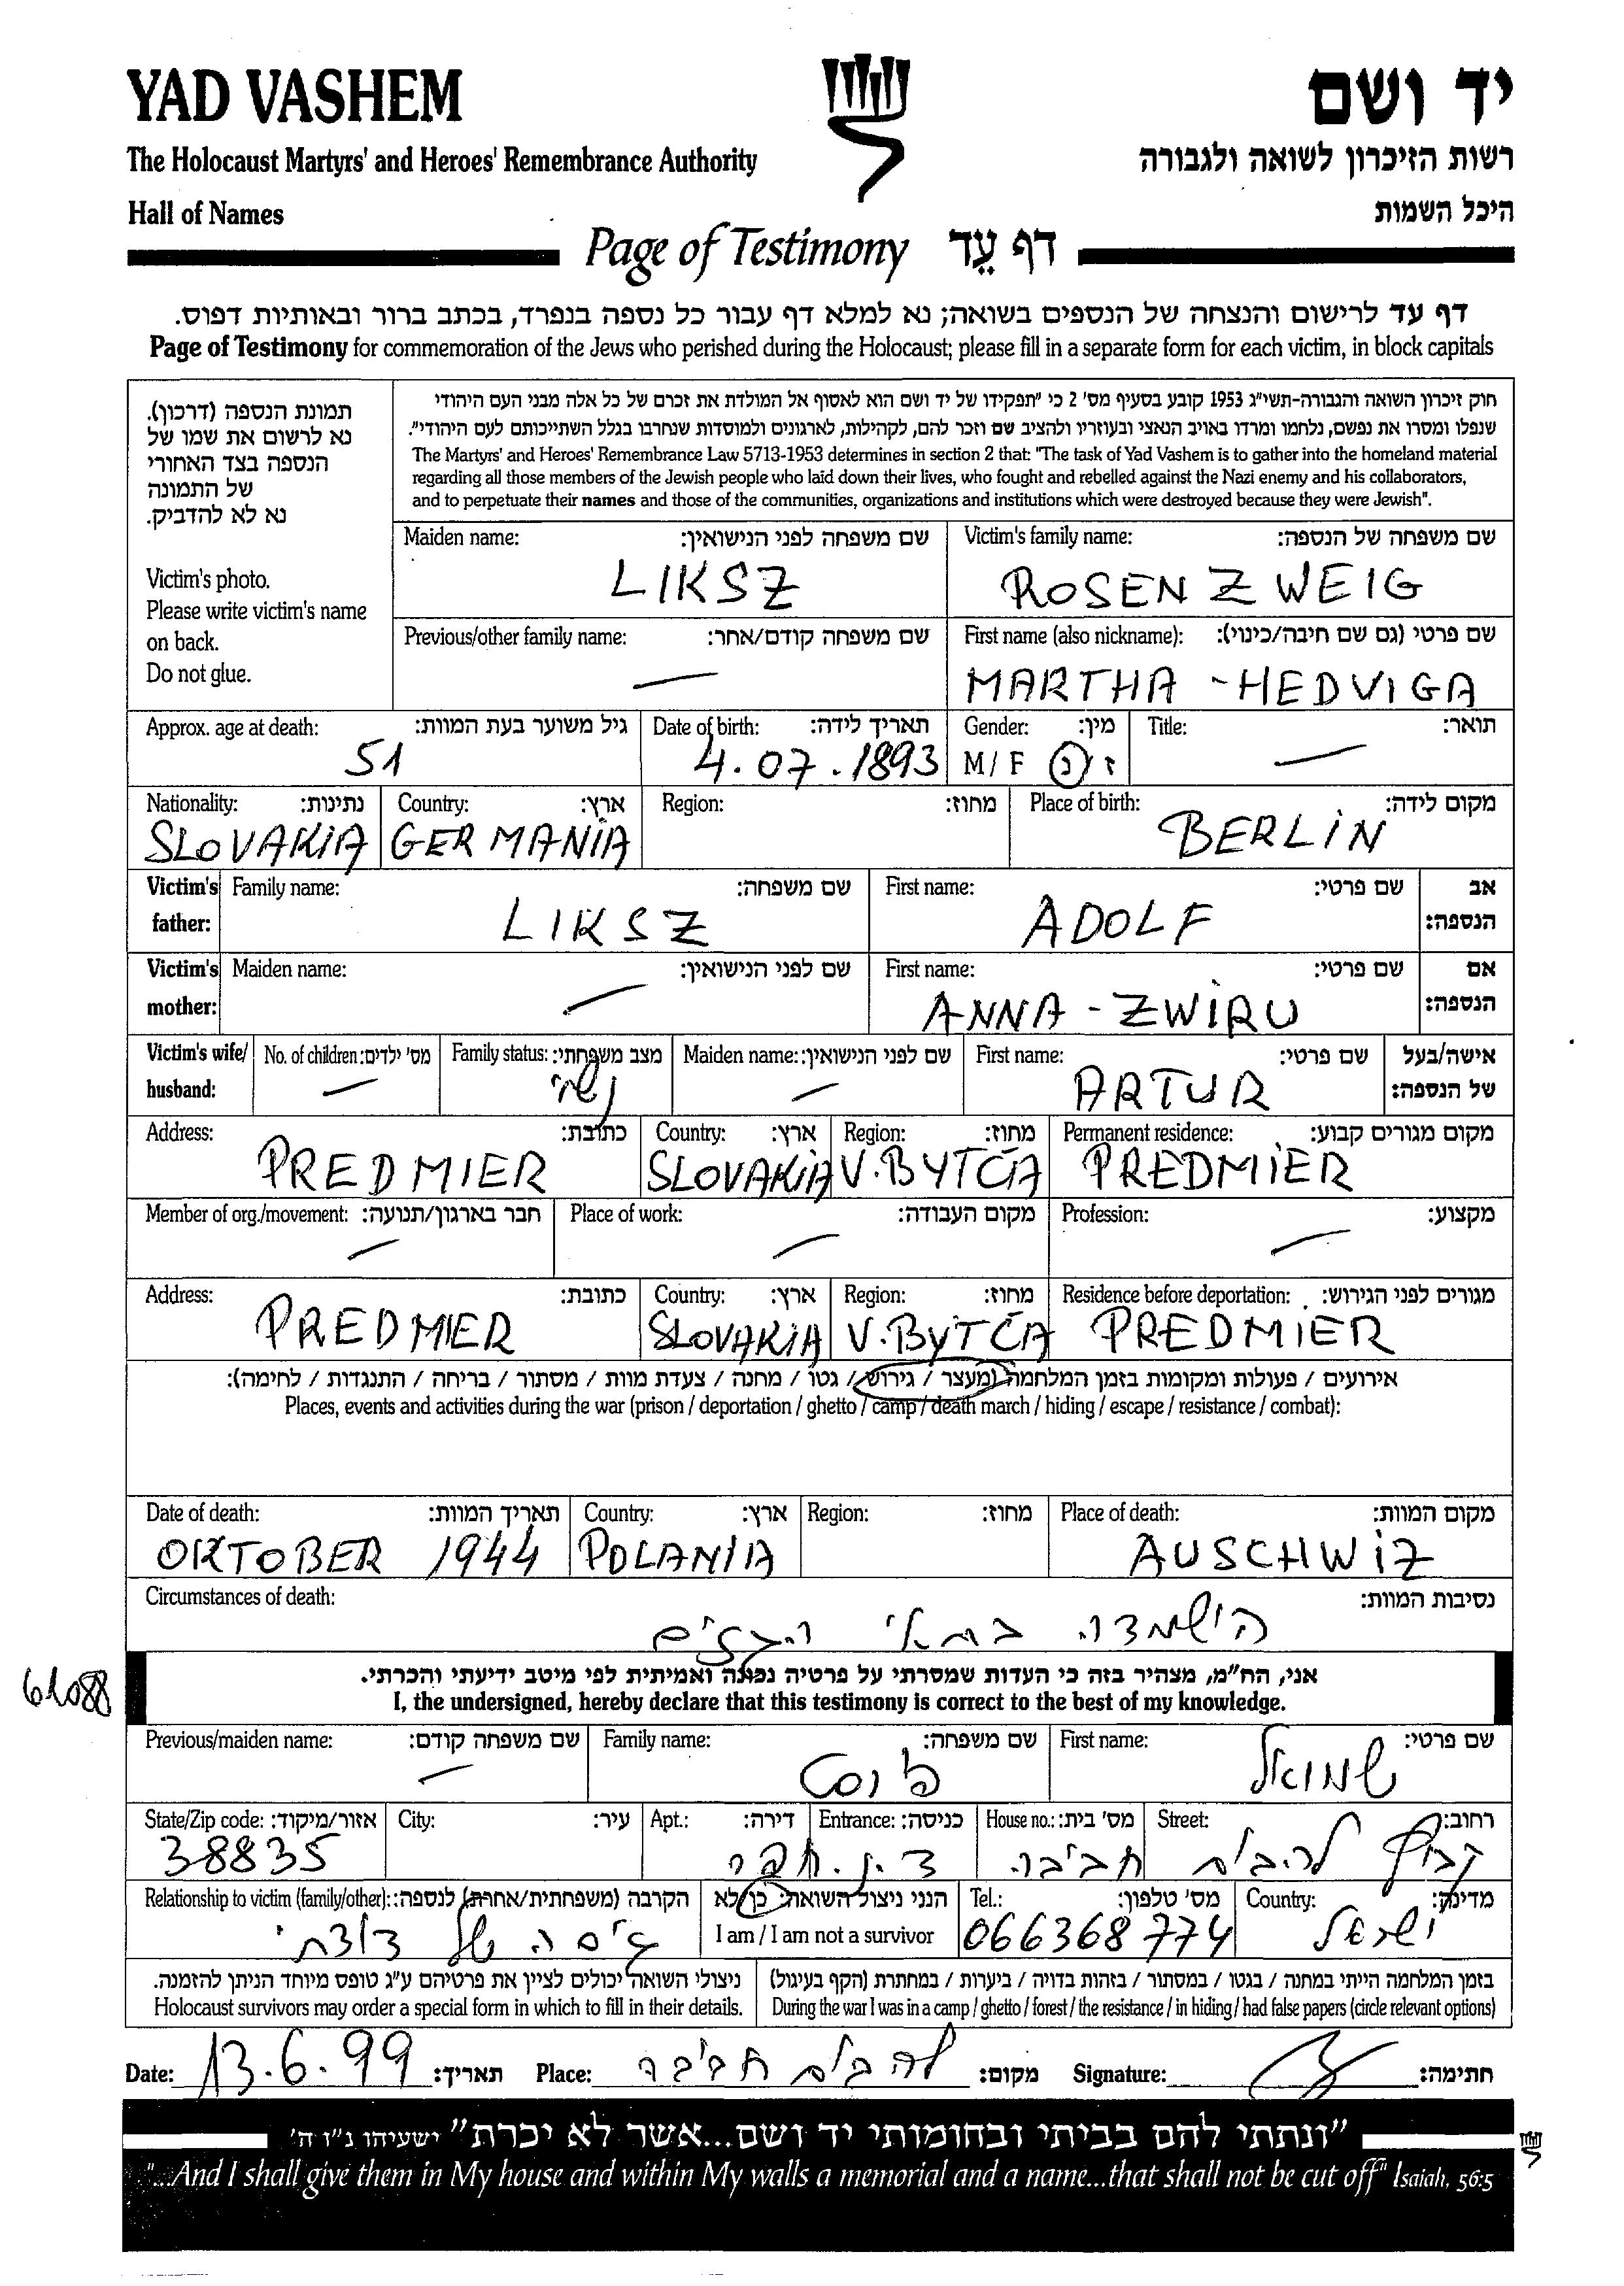 YAD VASHEM
יד ושם
The Holocaust Martyrs' and Heroes' Remembrance Authority
רשות הזיכרון לשואה ולגבורה
Hall of Names
היכל השמות
Page of Testimony דף עֵד
דף עד לרישום והנצחה של הנספים בשואה; נא למלא דף עבור כל נספה בנפרד, בכתב ברור ובאותיות דפוס.
Page of Testimony for commemoration of the Jews who perished during the Holocaust; please fill in a separate form for each victim, in block capitals
תמונת הנספה (דרכון).
נא לרשום את שמו של
הנספה בצד האחורי
של התמונה
נא לא להדביק.
Victim's photo.
Please write victim's name
on back.
Do not glue.
חוק זיכרון השואה והגבורה-תשי"ג 1953 קובע בסעיף מס' 2 כי "תפקידו של יד ושם הוא לאסוף אל המולדת את זכרם של כל אלה מבני העם היהודי
שנפלו ומסרו את נפשם, נלחמו ומרדו באויב הנאצי ובעוזריו ולהציב שם וזכר להם, לקהילות, לארגונים ולמוסדות שנחרבו בגלל השתייכותם לעם היהודי".
The Martyrs' and Heroes' Remembrance Law 5713-1953 determines in section 2 that: "The task of Yad Vashem is to gather into the homeland material
regarding all those members of the Jewish people who laid down their lives, who fought and rebelled against the Nazi enemy and his collaborators,
and to perpetuate their names and those of the communities, organizations and institutions which were destroyed because they were Jewish".
Maiden name: שם משפחה לפני הנישואין: Victim's family name: שם משפחה של הנספה:
LIKSZ ROSENZWEIG
Previous/other family name: שם משפחה קודם/אחר: First name (also nickname): שם פרטי (גם שם חיבה/כינוי):
— MARTHA - HEDVIGA
Approx. age at death: גיל משוער בעת המוות: Date of birth: תאריך לידה: Gender: מין: Title: תואר:
51 4.07.1893 M/F ז/נ —
Nationality: נתינות: Country: ארץ: Region: מחוז: Place of birth: מקום לידה:
SLOVAKIA GERMANIA BERLIN
Victim's father: Family name: שם משפחה: First name: שם פרטי: אב הנספה:
LIKSZ ADOLF
Victim's mother: Maiden name: שם לפני הנישואין: First name: שם פרטי: אם הנספה:
— ANNA - ZWIRU
Victim's wife/husband: No. of children: מס' ילדים: Family status: מצב משפחתי: Maiden name: שם לפני הנישואין: First name: שם פרטי: אישה/בעל של הנספה:
— נשוי — ARTUR
Address: כתובת: Country: ארץ: Region: מחוז: Permanent residence: מקום מגורים קבוע:
PREDMIER SLOVAKIA V.BYTČA PREDMIER
Member of org./movement: חבר בארגון/תנועה: Place of work: מקום העבודה: Profession: מקצוע:
— — —
Address: כתובת: Country: ארץ: Region: מחוז: Residence before deportation: מגורים לפני הגירוש:
PREDMIER SLOVAKIA V.BYTČA PREDMIER
אירועים / פעולות ומקומות בזמן המלחמה (מעצר / גירוש / גטו / מחנה / צעדת מוות / מסתור / בריחה / התנגדות / לחימה):
Places, events and activities during the war (prison / deportation / ghetto / camp / death march / hiding / escape / resistance / combat):
Date of death: תאריך המוות: Country: ארץ: Region: מחוז: Place of death: מקום המוות:
OKTOBER 1944 POLANIA AUSCHWIZ
Circumstances of death: נסיבות המוות:
הושמדה בתאי הגזים
61088
אני, הח"מ, מצהיר בזה כי העדות שמסרתי על פרטיה נכונה ואמיתית לפי מיטב ידיעתי והכרתי.
I, the undersigned, hereby declare that this testimony is correct to the best of my knowledge.
Previous/maiden name: שם משפחה קודם: Family name: שם משפחה: First name: שם פרטי:
— שמואל
State/Zip code: אזור/מיקוד: City: עיר: Apt.: דירה: Entrance: כניסה: House no.: מס' בית: Street: רחוב:
38835 ד.נ. חפר חביבה קבוץ להבות
Relationship to victim (family/other): הקרבה (משפחתית/אחרת) לנספה: הנני ניצול השואה: כן/לא Tel.: מס' טלפון: Country: מדינה:
I am / I am not a survivor
גיסה של דודתי 066368774 ישראל
ניצולי השואה יכולים לציין את פרטיהם ע"ג טופס מיוחד הניתן להזמנה.
Holocaust survivors may order a special form in which to fill in their details.
בזמן המלחמה הייתי במחנה / בגטו / במסתור / בזהות בדויה / ביערות / במחתרת (הקף בעיגול)
During the war I was in a camp / ghetto / forest / the resistance / in hiding / had false papers (circle relevant options)
Date: 13.6.99 תאריך: Place: להבות חביבה מקום: Signature: חתימה:
"ונתתי להם בביתי ובחומותי יד ושם...אשר לא יכרת" ישעיהו נ"ו ה'
"...And I shall give them in My house and within My walls a memorial and a name...that shall not be cut off" Isaiah, 56:5